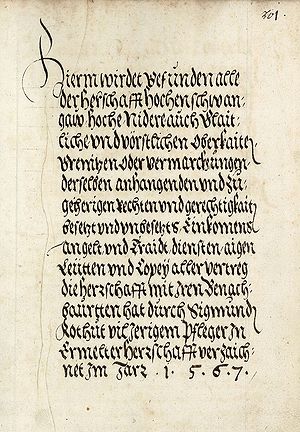 201.
Hierin wirdet befunden alle
der herschafft hochenschwan-
gaw hoche Nidere auch Glait-
liche vnd vörstlichen Oberkaiten
Grenitzen oder vermarckungen
derselben anhangenden vnd Zu-
gehörigen Rechten vnd gerechtigkaiten
besetzt vnd vnbesetzt Einkomens
an gelt vnd Traidt diensten aigen
Leütten vnd Copey aller vertreg
die herrschafft mit Iren Benach-
paurtten hat durch Sigmund
Jerigem Pfleger In
Ermelter herrschafft verzaich-
net Im Jarz . 1 . 5 . 6 . 7 .